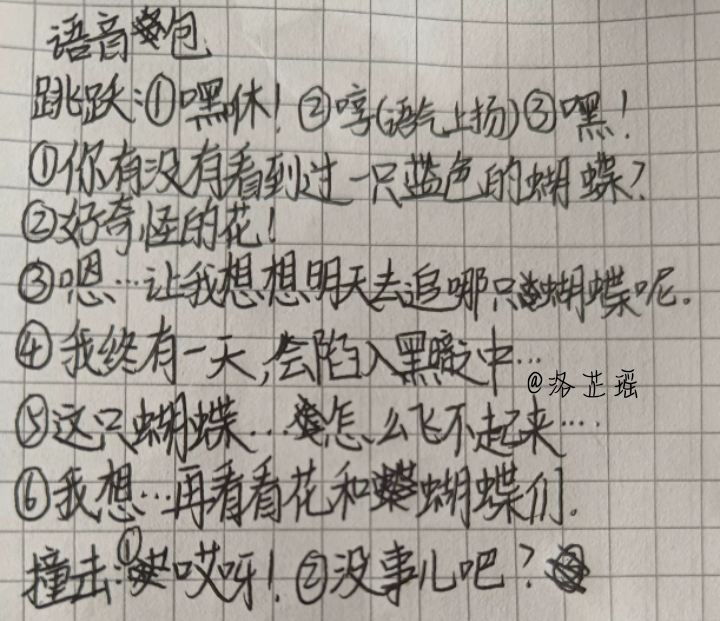 语音包
跳跃:①嘿咻!②哼(语气上扬)③嘿!
①你有没有看到过一只蓝色的蝴蝶?
②好奇怪的花!
③嗯…让我想想明天去追哪只蝴蝶呢.
④我终有一天,会陷入黑暗中…
@洛芷瑶
⑤这只蝴蝶…怎么飞不起来….
⑥我想…再看看花和蝴蝶们.
撞击:①哎呀!②没事儿吧?